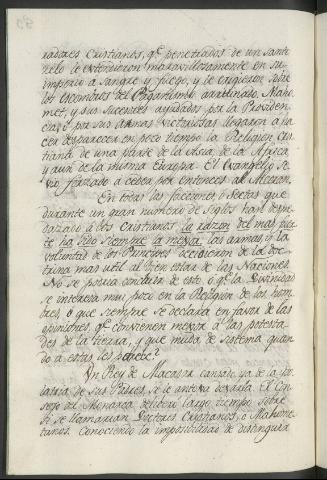 radores Cristianos, qᵉ. penetrados de un santo
zelo le extendieron maravillosamente en su
imperio à sangre y fuego, y le erigieron sobre
los escombros del Paganismo arruinado. Maho-
met, y sus sucesores ayudados por la Providen-
cia, ò por sus Armas victoriosas llegaron à ha-
cer desaparecer en poco tiempo la Religion cris-
tiana de una parte de la Asia, de la Africa
y aun de la misma Europa. El Evangelio se
vio forzado à ceder por entonces al Alcoran.
En todas las facciones, ò sectas que
durante un gran numero de siglos han despe-
dazado à los cristianos, la razon del mas fuer-
te ha sido siempre la mejor; las armas ò la
voluntad de los Principes decidieron de la doc-
trina mas util al bien estar de las Naciones.
No se podria concluir de esto, ò qᵉ. la Divinidad
se interesa muy poco en la Religion de los hom-
bres, ò que siempre se declara en favor de las
opiniones qᵉ. convienen mejor à las potesta-
des de la tierra, y que muda de sistema quan-
do à estas les parece?
Un Rey de Macasar cansado ya de la ido-
latria de sus Padres, se le antojo dexarla. El Con-
sejo del Monarca deliberò largo tiempo sobre
si se llamarian Doctores Cristianos, ò Mahome-
tanos. Conociendo la imposibilidad de distinguir